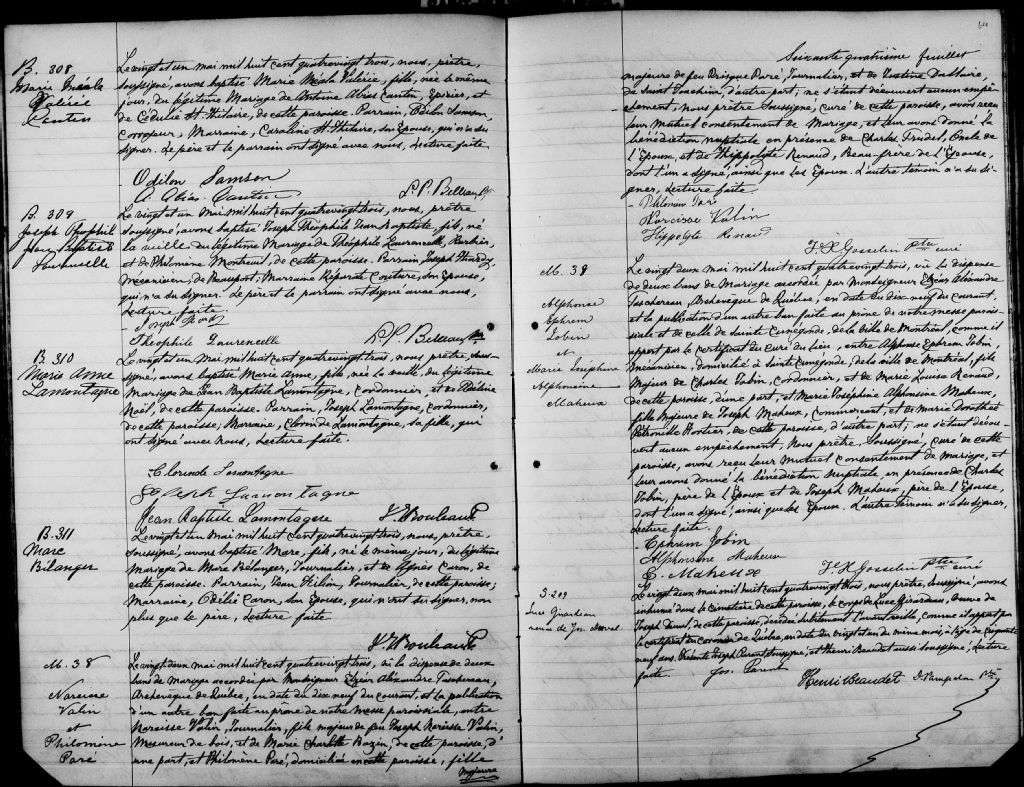 B. 308
Marie
Valérée
Cantin
Le vingt et un Mai mil huit cent quatrevingt trois, nous, prêtre,
soussigné, avons baptisé Marie Valérée, fille, née le même
jour, du légitime Mariage de Antoine Abias Cantin, Epicier, et
de Cédulie St. Hilaire, de cette paroisse. Parrain, Odilon Samson,
Corroyeur, Marraine, Caroline St. Hilaire, son Epouse, qui n'a su
signer. Le père et le parrain ont signé avec nous, Lecture faite.
Odilon Samson
A. Abias Cantin
L. P. Belleau Ptre
B. 309
Joseph Théophile
Jean Baptiste
Laurencelle
Le vingt et un Mai mil huit cent quatrevingt trois, nous, prêtre
soussigné, avons baptisé Joseph Théophile Jean Baptiste, fils, né
la veille du légitime Mariage de Théophile Laurencelle,
et de Philomène Montreuil, de cette paroisse. Parrain, Joseph
Mécanicien, de Beauport; Marraine Couture, son Epouse,
qui n'a su signer. Le père et le parrain ont signé avec nous,
Lecture faite.
Joseph
Théophile Laurencelle
L. P. Belleau Ptre
B 310
Marie Anne
Lamontagne
Le vingt et un Mai mil huit cent quatrevingt trois, nous prêtre sous-
signé, avons baptisé Marie Anne, fille, née la veille, du légitime
mariage de Jean Baptiste Lamontagne, cordonnier, et de
Noël, de cette paroisse. Parrain, Joseph Lamontagne, cordonnier,
de cette paroisse; Marraine, Clorinde Lamontagne, sa fille, qui
ont signé avec nous, Lecture faite.
Clorinde Lamontagne
Joseph Lamontagne
Jean Baptiste Lamontagne
Rouleau Pt
B. 311
Marc
Bélanger
Le vingt et un Mai mil huit cent quatrevingt trois, nous, prêtre,
soussigné, avons baptisé Marc, fils, né le même jour, du légitime
Mariage de Marc Bélanger, Journalier, et de Agnès Caron, de
cette paroisse. Parrain, Jean Journalier, de cette paroisse;
Marraine, Odélie Caron, son Epouse, qui n'ont su signer, non
plus que le père, Lecture faite
Rouleau Pt
M. 38
Narcisse
Valin
et
Philomène
Paré
Le vingt deux mai mil huit cent quatrevingt trois, vu la dispense de deux
bans de Mariage accordée par Monseigneur Elzéar Alexandre Taschereau,
Archevêque de Québec, en date du dix neuf du courant, et la publication
d'un autre ban faite au prône de notre messe paroissiale, entre
Narcisse Valin, Journalier, fils majeur de feu Joseph Narcisse Valin,
Mesureur de bois, et de Marie Charlotte Bazin, de cette paroisse, d'
une part, et Philomène Paré, domiciliée en cette paroisse, fille
majeure
Soixante quatrième feuillet
majeure de feu Prisque Paré, Journalier, et de Justine Dallaire,
de Saint Joachim, d'autre part; ne s'étant découvert aucun empê-
chement; nous prêtre soussigné, curé de cette paroisse, avons reçu
leur mutuel consentement de Mariage, et leur avons donné la
bénédiction nuptiale en présence de Charles Trudel, Oncle de
l'Epouse, et de Hippolyte Renaud, Beau-frère de l'Epouse,
dont l'un a signé, ainsi que les Epoux. L'autre témoin n'a su si-
gner, Lecture faite.
Philomène Paré
Narcisse Valin
Hippolyte Renaud
F X Gosselin Ptre curé
M. 39
Alphonse
Ephrem
Jobin
et
Marie Joséphine
Alphonsine
Maheux
Le vingt deux mai mil huit cent quatrevingt trois, vu la dispense
de deux bans de Mariage accordée par Monseigneur Elzéar Alexandre
Taschereau, Archevêque de Québec, en date du dix neuf du courant,
et la publication d'un autre ban faite au prône de notre messe parois-
siale et de celle de Sainte Cunégonde, de la Ville de Montréal, comme il
appert par le certificat du curé du lieu, entre Alphonse Ephrem Jobin,
Mécanicien, domicilié à Sainte Cunégonde, de la ville de Montréal, fils
Majeur de Charles Jobin, cordonnier, et de Marie Louise Renaud,
de cette paroisse, d'une part, et Marie Joséphine Alphonsine Maheux,
fille Majeure de Joseph Maheux, commerçant, et de Marie Dorothée
Pétronille Fortier, de cette paroisse, d'autre part; ne s'étant décou-
vert aucun empêchement, Nous prêtre, soussigné, curé de cette
paroisse, avons reçu leur mutuel consentement de mariage, et
leur avons donné la bénédiction nuptiale, en présence de Charles
Jobin, père de l'Epoux et de Joseph Maheux, père de l'Epouse,
dont l'un a signé, ainsi que les Epoux. L'autre témoin n'a su signer,
Lecture faite.
Ephrem Jobin
Alphonsine Maheux
Maheux
F X Gosselin Ptre curé
S. 209
Luce Girardeau
veuve de Jos.
Le vingt deux mai mil huit cent quatrevingt trois, nous prêtre, soussigné, avons
inhumé dans le Cimetière de cette paroisse, le corps de Luce Girardeau, veuve de
Joseph de cette paroisse, décédée subitement l'avant veille, comme il appert par
le certificat du coroner de Québec, en date du vingt et un du même mois, à l'âge de cinquante
neuf ans. Présents Joseph Parent soussigné, et Henri Beaudet aussi soussigné, Lecture
faite.
Jos. Parent
Henri Beaudet
Ptre